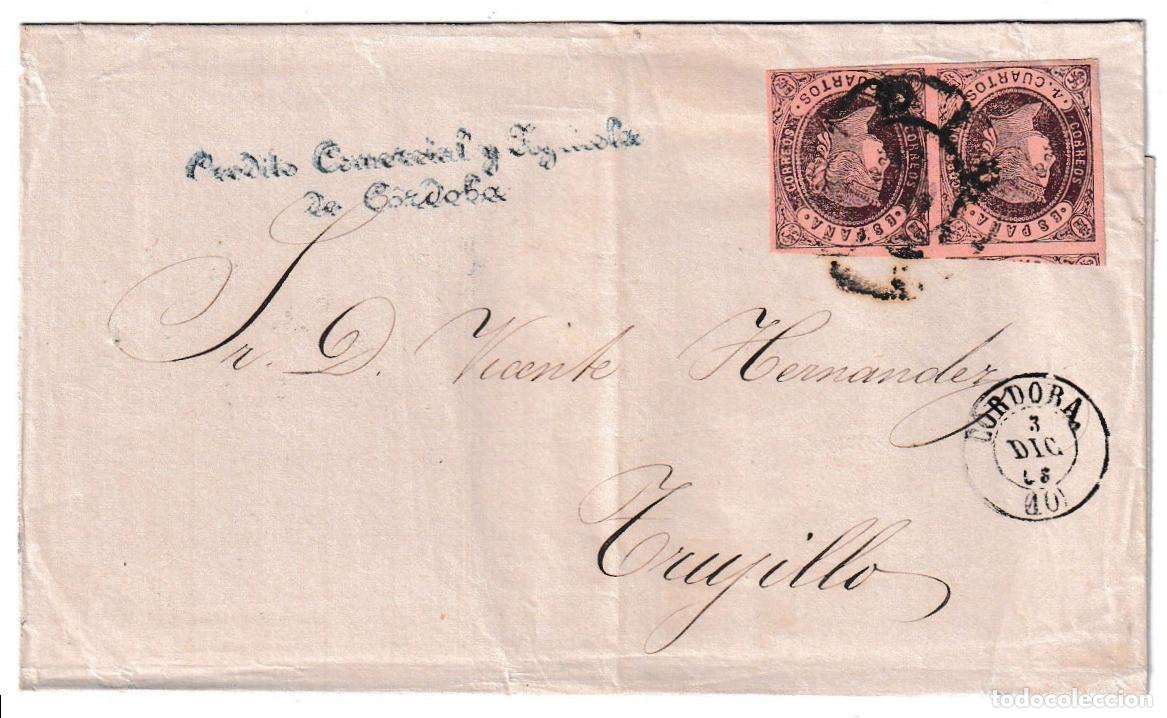 Credito Comercial y Agricola
de Córdoba
4. CUARTOS
CORREOS
ESPAÑA
4. CUARTOS
CORREOS
ESPAÑA
Sr. D. Vicente Hernandez
Trujillo
CORDOBA.
3
DIC
(10)
todocoleccion